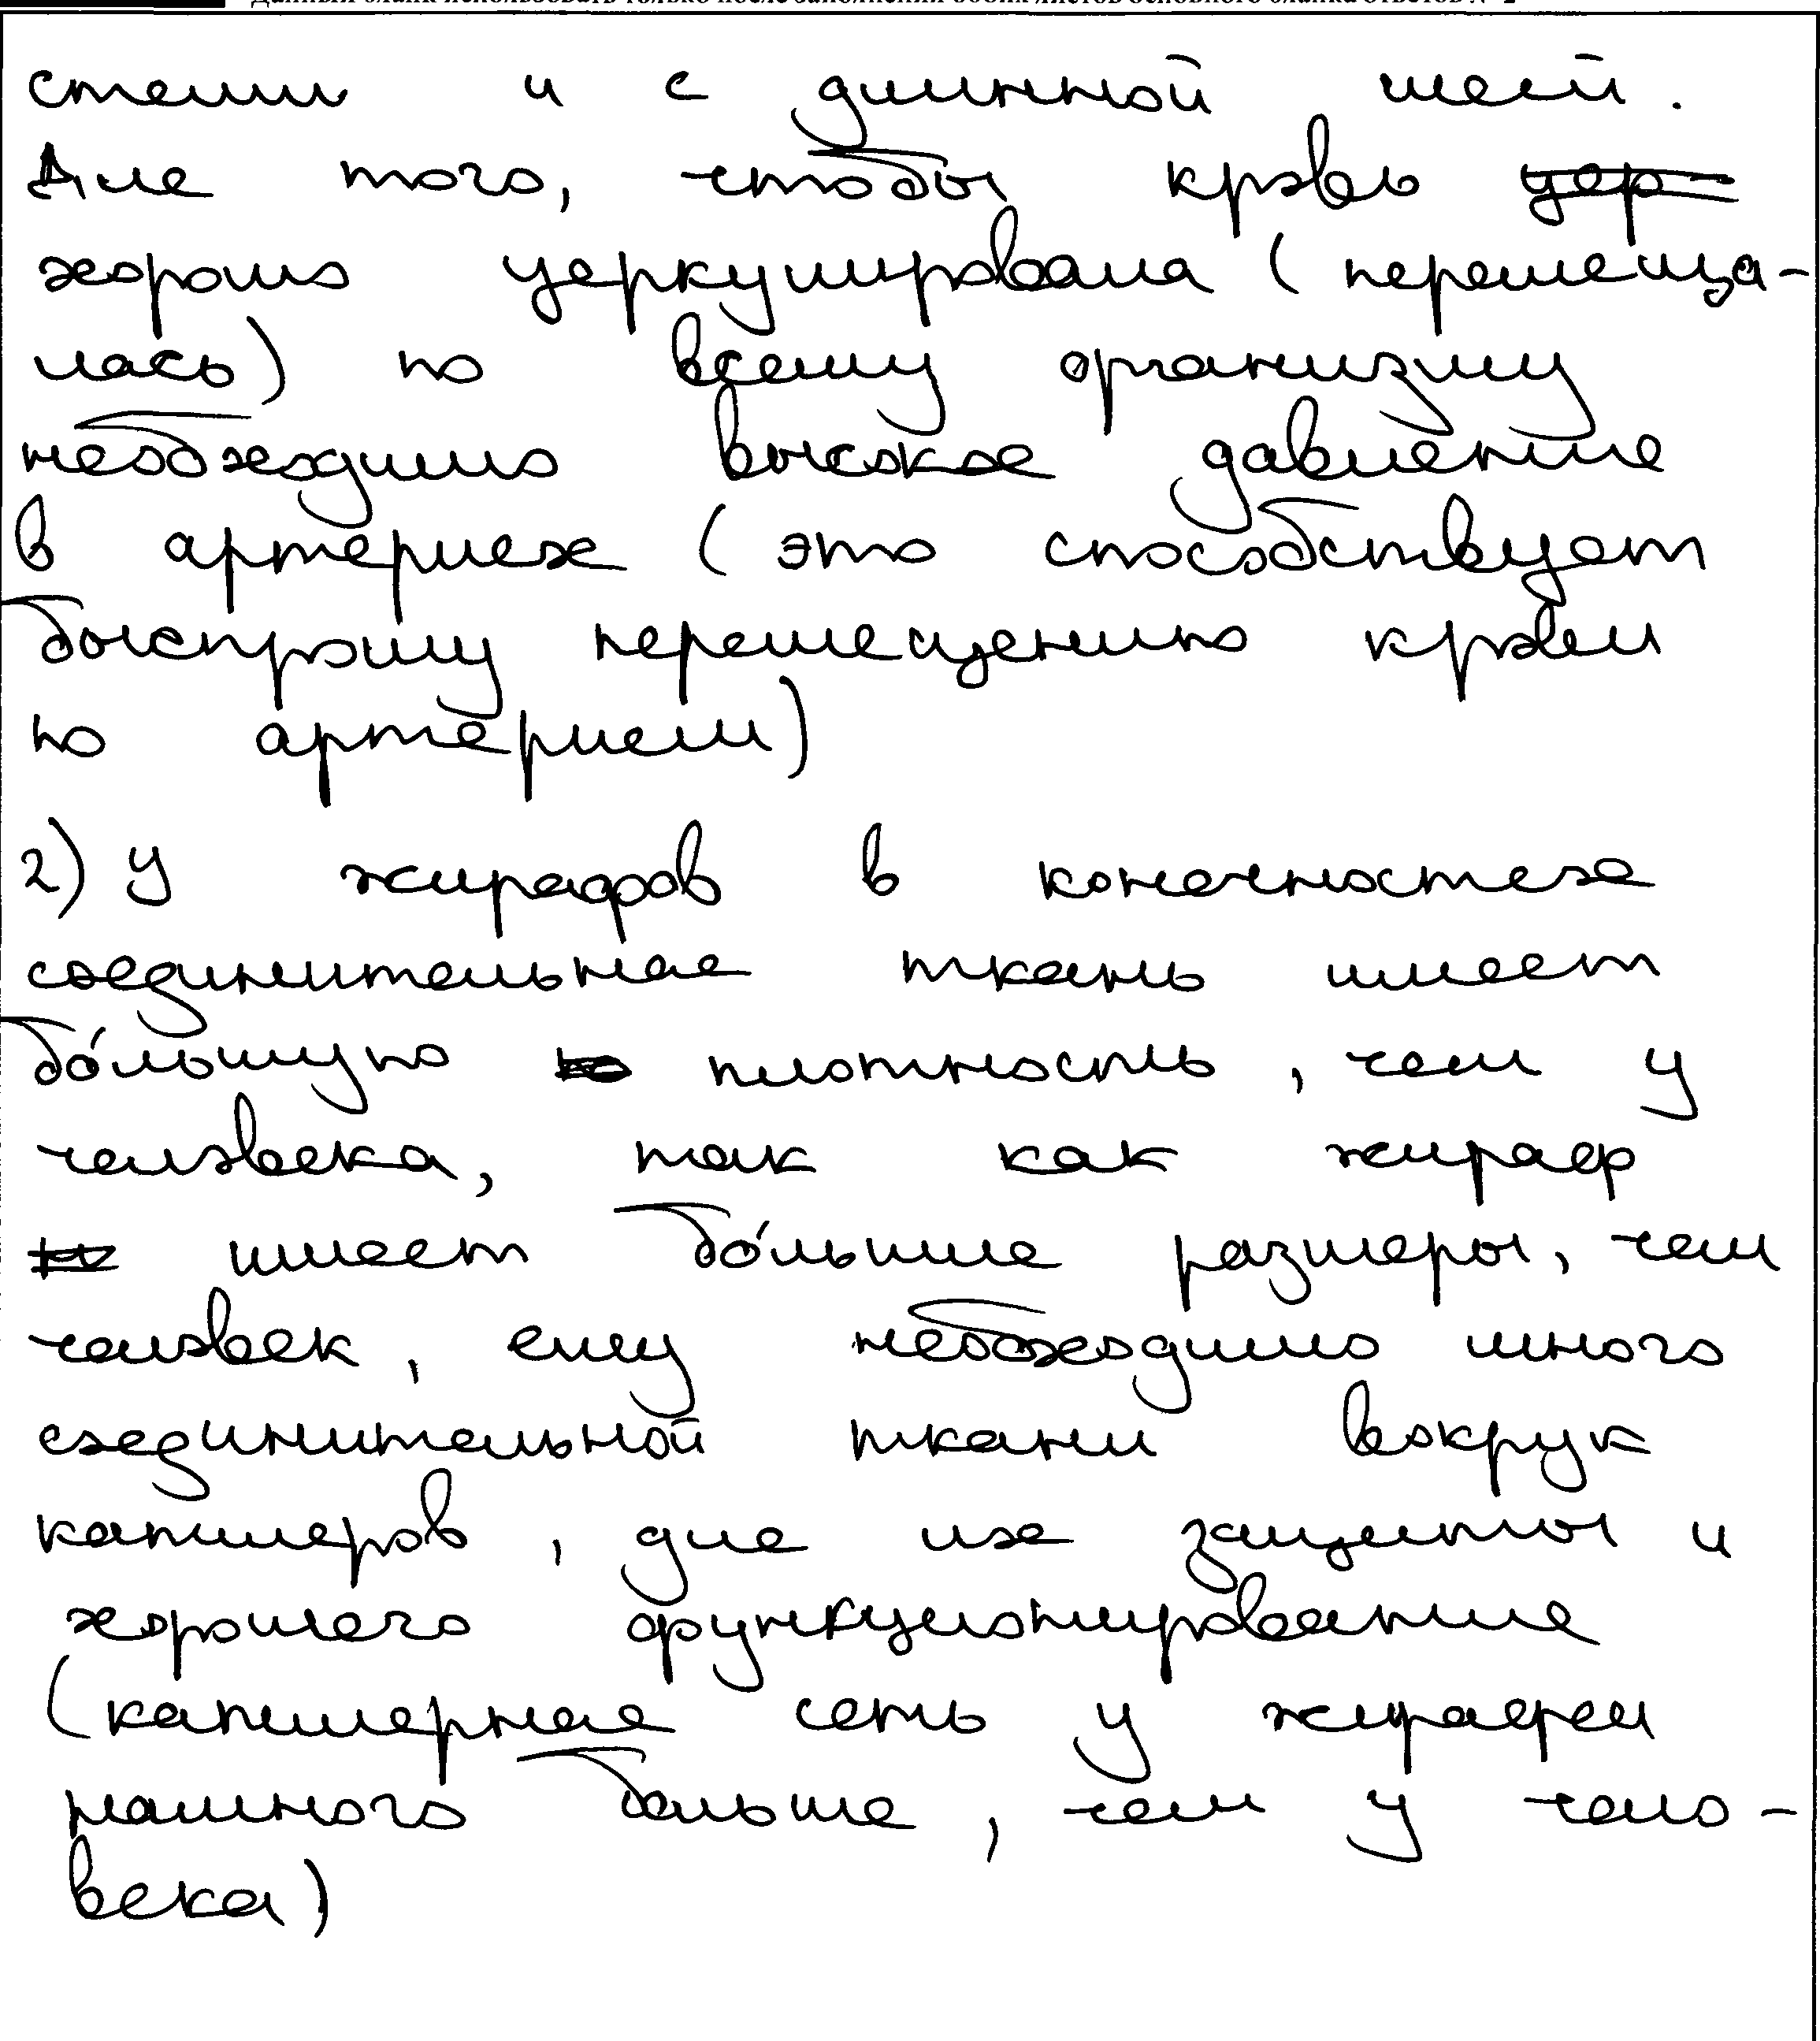 стями и с длинной шеей.
Для того, чтобы кровь цер-
хорошо церкулировала (перемеща-
лась) по всему организму
необходимо высокое давление
в артериях (это способствует
быстрому перемещению крови
по артериям)
2) У жирафов в конечностях
соединительная ткань имеет
бо́льшую плотность, чем у
человека, так как жираф
имеет бо́льшие размеры, чем
человек, ему необходимо много
соединительной ткани вокруг
капиляров, для их защиты и
хорошего функционирование
(капилярная сеть у жирафа
намного больше, чем у чело-
века)